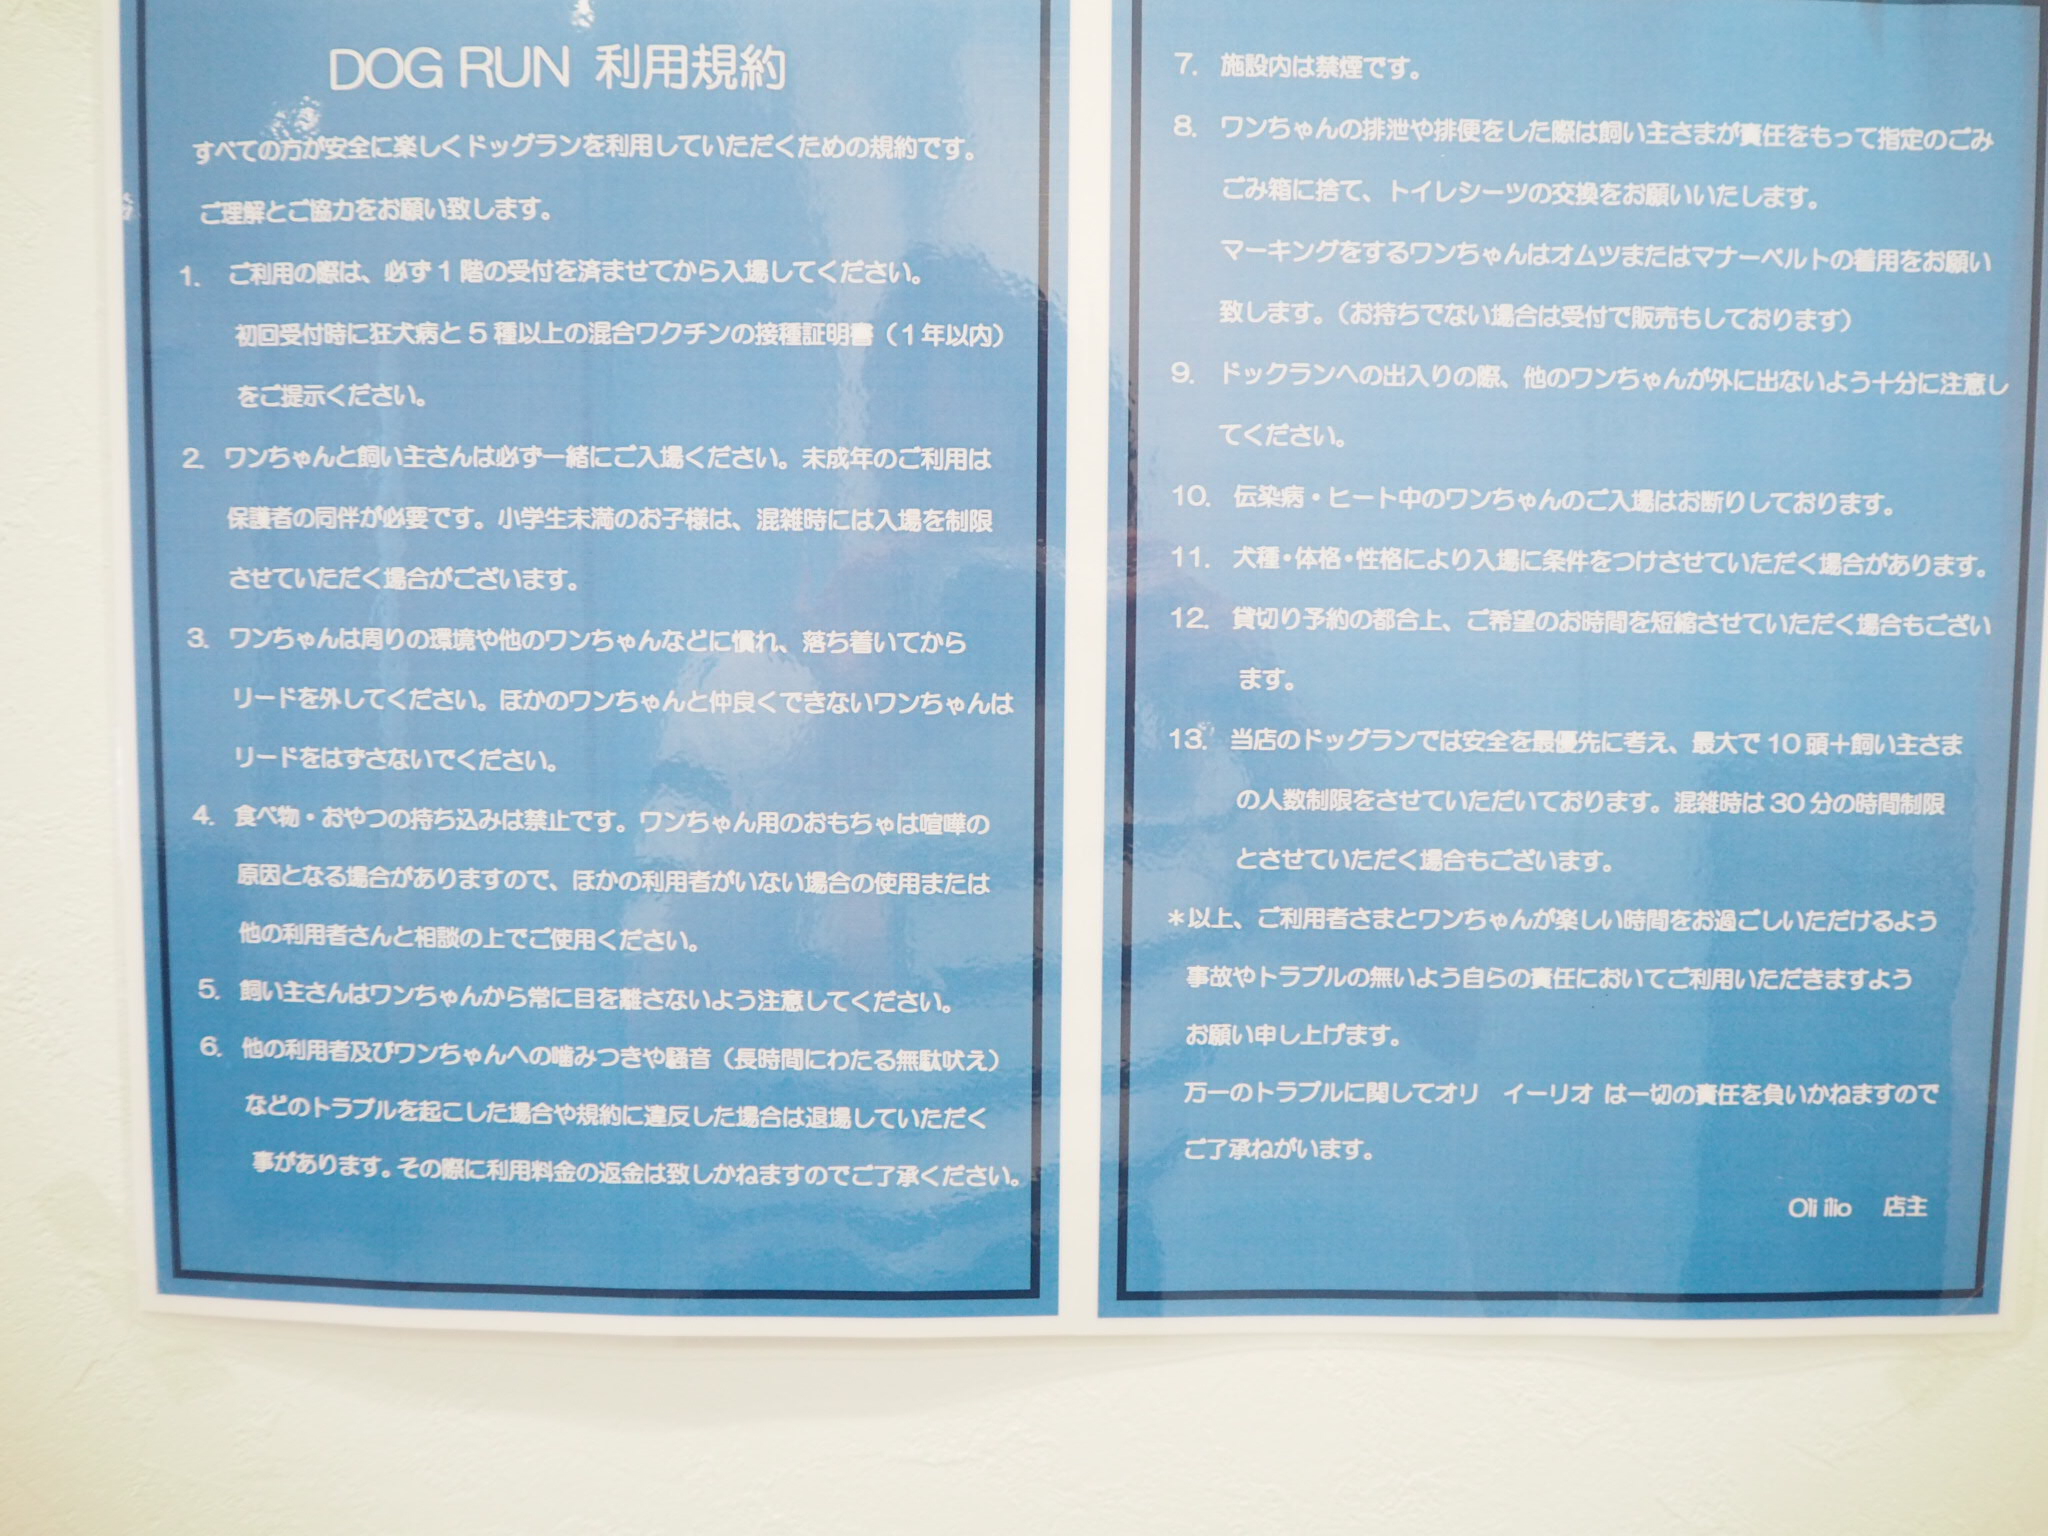 DOG RUN 利用規約
すべての方が安全に楽しくドッグランを利用していただくための規約です。
ご理解とご協力をお願い致します。
1. ご利用の際は、必ず1階の受付を済ませてから入場してください。
初回受付時に狂犬病と5種以上の混合ワクチンの接種証明書（1年以内）
をご提示ください。
2. ワンちゃんと飼い主さんは必ず一緒にご入場ください。未成年のご利用は
保護者の同伴が必要です。小学生未満のお子様は、混雑時には入場を制限
させていただく場合がございます。
3. ワンちゃんは周りの環境や他のワンちゃんなどに慣れ、落ち着いてから
リードを外してください。ほかのワンちゃんと仲良くできないワンちゃんは
リードをはずさないでください。
4. 食べ物・おやつの持ち込みは禁止です。ワンちゃん用のおもちゃは喧嘩の
原因となる場合がありますので、ほかの利用者がいない場合の使用または
他の利用者さんと相談の上でご使用ください。
5. 飼い主さんはワンちゃんから常に目を離さないよう注意してください。
6. 他の利用者及びワンちゃんへの噛みつきや騒音（長時間にわたる無駄吠え）
などのトラブルを起こした場合や規約に違反した場合は退場していただく
事があります。その際に利用料金の返金は致しかねますのでご了承ください。
7. 施設内は禁煙です。
8. ワンちゃんの排泄や排便をした際は飼い主さまが責任をもって指定のごみ
ごみ箱に捨て、トイレシーツの交換をお願いいたします。
マーキングをするワンちゃんはオムツまたはマナーベルトの着用をお願い
致します。（お持ちでない場合は受付で販売もしております）
9. ドックランへの出入りの際、他のワンちゃんが外に出ないよう十分に注意し
てください。
10. 伝染病・ヒート中のワンちゃんのご入場はお断りしております。
11. 犬種・体格・性格により入場に条件をつけさせていただく場合があります。
12. 貸切り予約の都合上、ご希望のお時間を短縮させていただく場合もござい
ます。
13. 当店のドッグランでは安全を最優先に考え、最大で10頭＋飼い主さま
の人数制限をさせていただいております。混雑時は30分の時間制限
とさせていただく場合もございます。
＊以上、ご利用者さまとワンちゃんが楽しい時間をお過ごしいただけるよう
事故やトラブルの無いよう自らの責任においてご利用いただきますよう
お願い申し上げます。
万一のトラブルに関してオリ　イーリオ は一切の責任を負いかねますので
ご了承ねがいます。
Oli ilio　店主